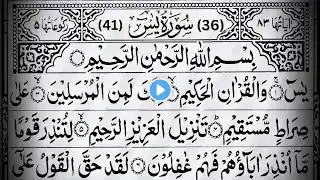 اٰيَاتُهَا ٨٣ (36) سُوْرَةُ يٰسٓ (41) رُكُوْعَاتُهَا ٥
بِسْمِ اللهِ الرَّحْمٰنِ الرَّحِيْمِ
يٰسٓ ۝ وَالْقُرْاٰنِ الْحَكِيْمِ ۝ لَمِنَ الْمُرْسَلِيْنَ ۝ عَلٰى
صِرَاطٍ مُّسْتَقِيْمٍ ۝ تَنْزِيْلَ الْعَزِيْزِ الرَّحِيْمِ ۝ لِتُنْذِرَ قَوْمًا
مَّاۤ اُنْذِرَ اٰبَآؤُهُمْ فَهُمْ غٰفِلُوْنَ ۝ لَقَدْ حَقَّ الْقَوْلُ عَلٰٓى